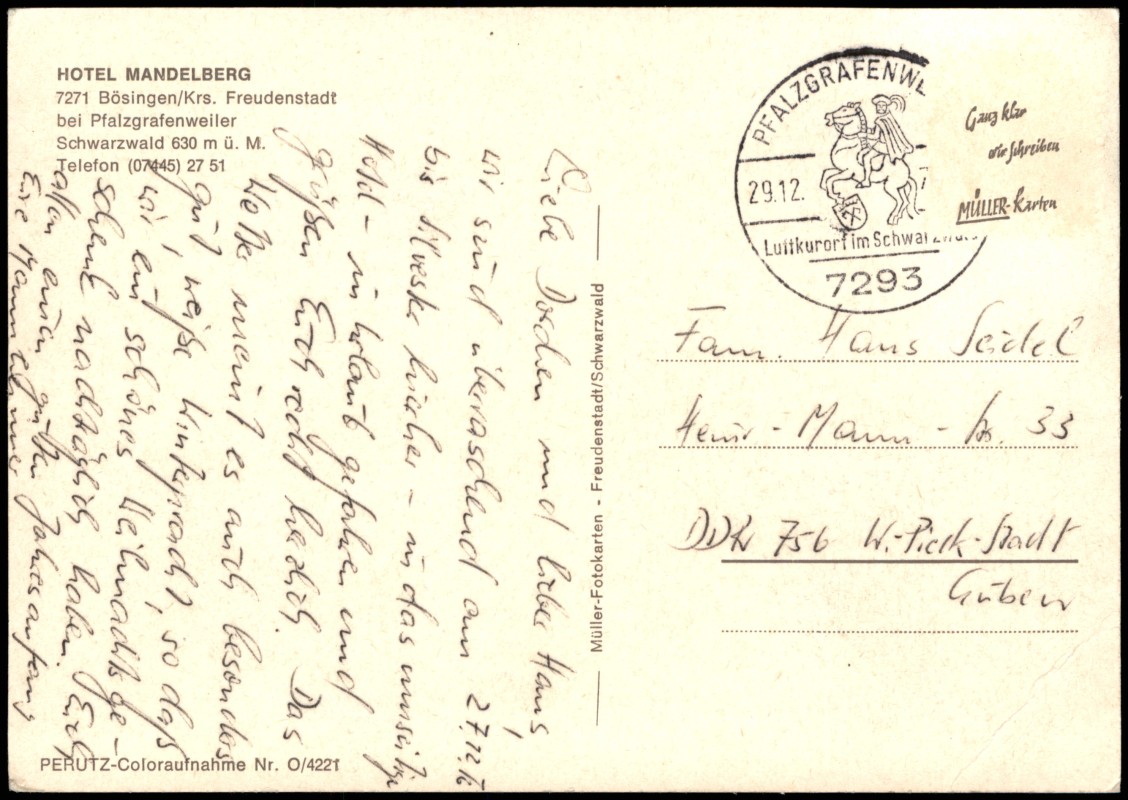 HOTEL MANDELBERG
7271 Bösingen/Krs. Freudenstadt
bei Pfalzgrafenweiler
Schwarzwald 630 m ü. M.
Telefon (07445) 27 51
PFALZGRAFENWE
29.12.
Luftkurort im Schwarzwald
7293
Ganz klar
wir schreiben
MÜLLER-Karten
Liebe und liebe Hans
wir sind überraschend am 27.12.
bis hierher - in das
Hotel - in Urlaub gefahren und
grüßen Euch recht herzlich. Das
meint es auch besonders
gut, weiße Winterpracht, so daß
wir ein schönes Weihnachtsge-
schenk nachträglich haben. Euch
allen einen guten Jahresanfang
Eure
Müller-Fotokarten - Freudenstadt/Schwarzwald
Fam. Hans Seidel
Heinr-Mann-Str. 33
DDR 756 W.-Pieck-Stadt
Guben
PERUTZ-Coloraufnahme Nr. O/4221